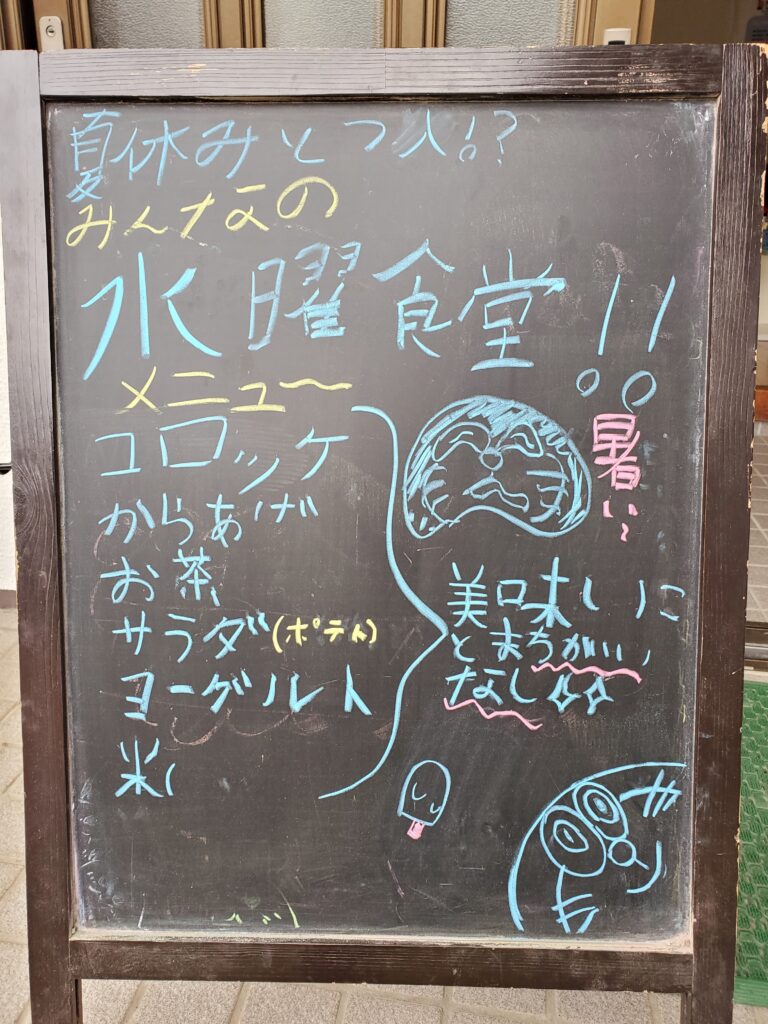 夏休みとつ入!?
みんなの
水曜食堂!!
メニュ〜
コロッケ
からあげ
お茶
サラダ(ポテト)
ヨーグルト
米
暑い〜
美味しいに
とまちがい
なし☆☆